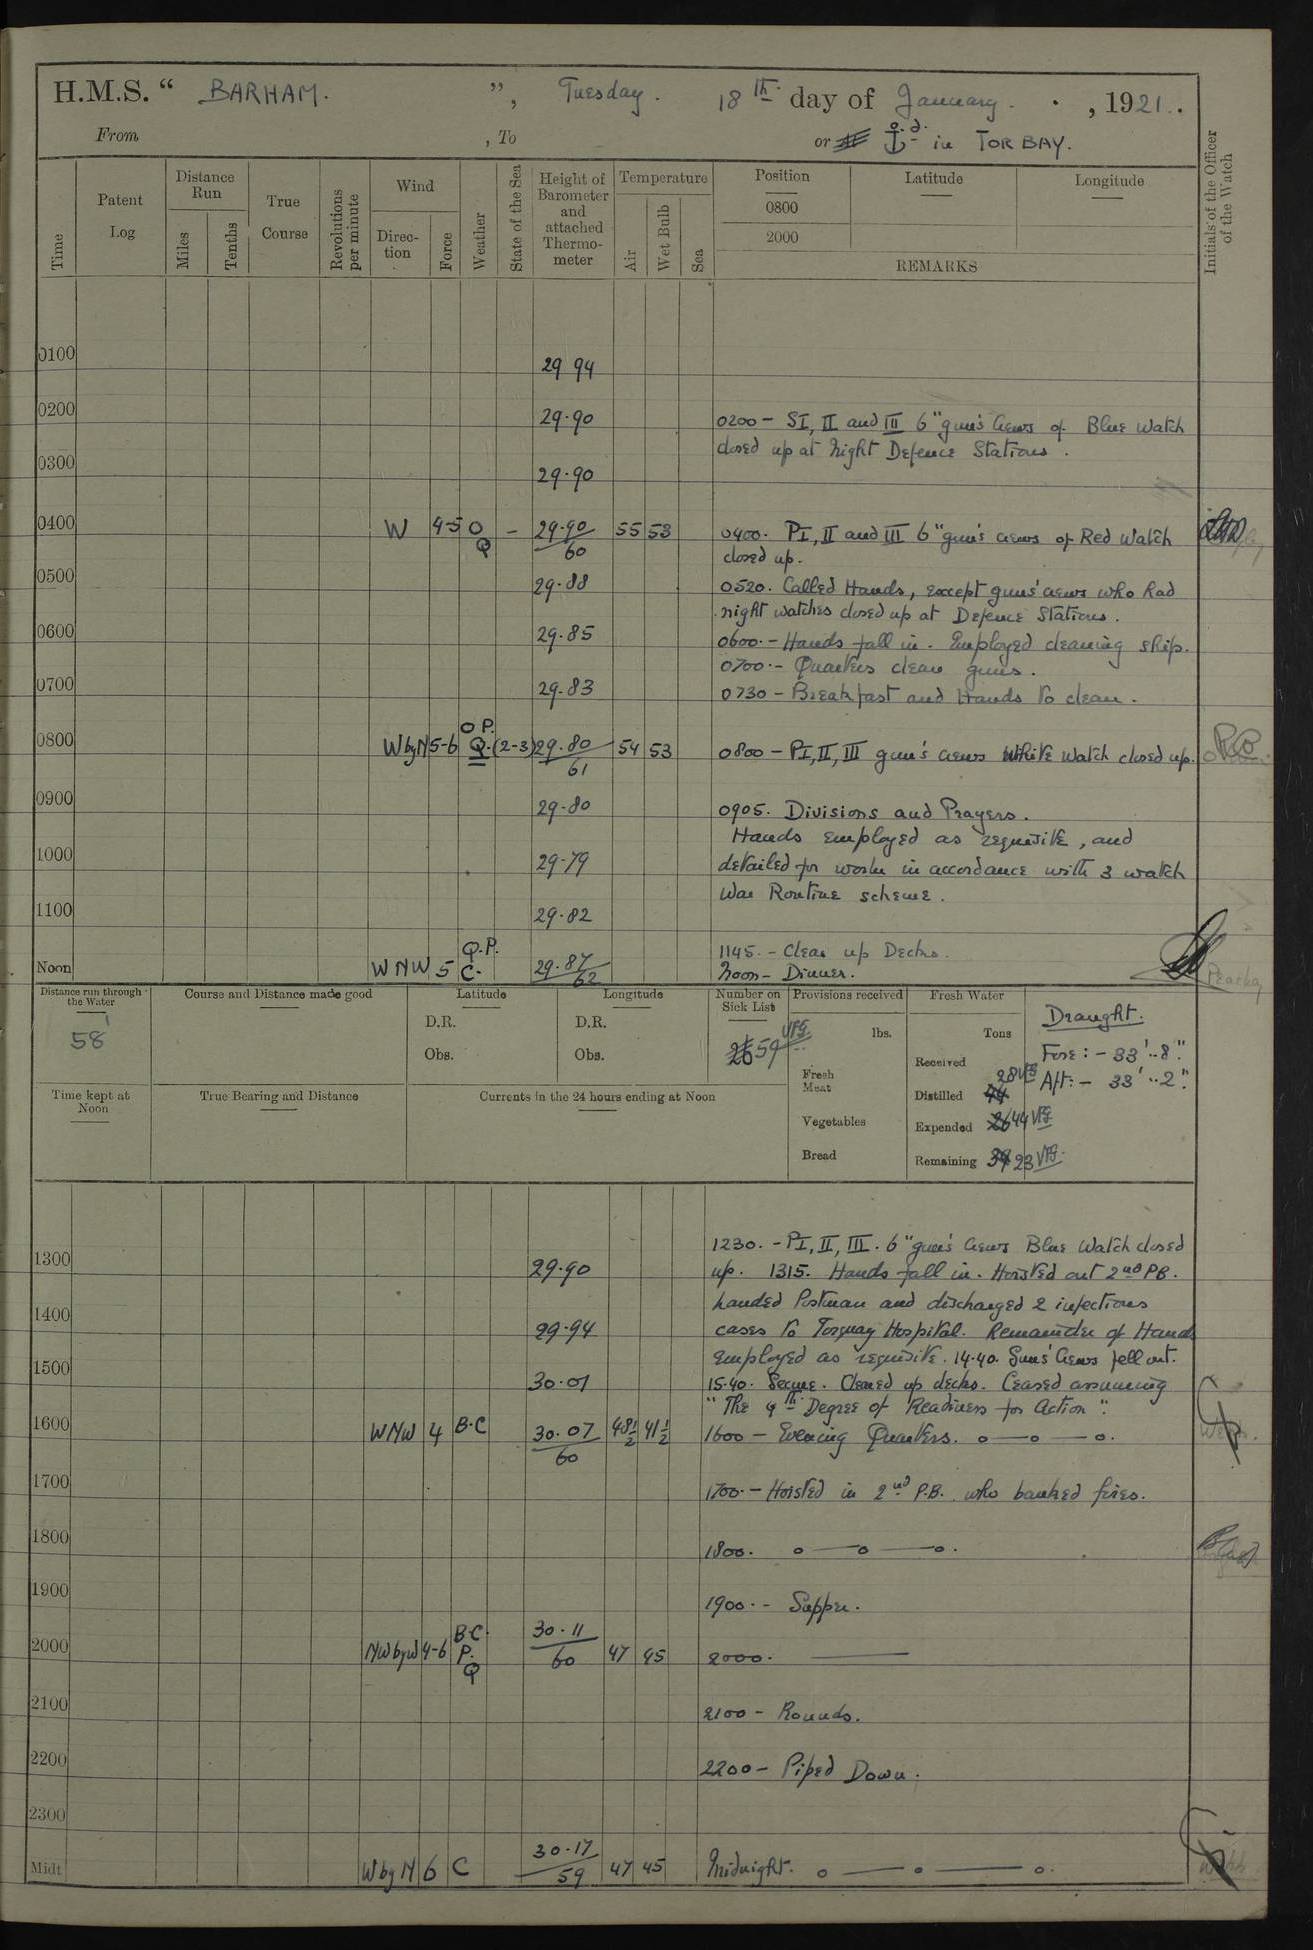 H.M.S. “ BARHAM. ”, Tuesday. 18th day of January. , 1921.
From , To or ⚓ d. in TOR BAY.
Time Patent Log Distance Run Miles Tenths True Course Revolutions per minute Wind Direction Force Weather State of the Sea Height of Barometer and attached Thermometer Temperature Air Wet Bulb Sea Position 0800 2000 Latitude Longitude REMARKS Initials of the Officer of the Watch
0100 29 94
0200 29.90 0200 - SI, II and III 6" gun's Crews of Blue Watch
closed up at Night Defence Stations.
0300 29.90
0400 W 4-5 O Q - 29.90 60 55 53 0400. PI, II and III 6" gun's crews of Red Watch
closed up.
0500 29.88 0520. Called Hands, except guns' crews who had
night watches closed up at Defence Stations.
0600 29.85 0600. - Hands fall in. Employed cleaning ship.
0700. - Quarters clean guns.
0700 29.83 0730 - Breakfast and Hands to clean.
0800 W by N 5-6 O P. Q. (2-3) 29.80 61 54 53 0800 - PI, II, III gun's crews White Watch closed up.
0900 29.80 0905. Divisions and Prayers.
Hands employed as requisite, and
1000 29.79 detailed for work in accordance with 3 watch
War Routine scheme.
1100 29.82
1145. - Clear up Decks.
Noon WNW 5 Q.P. C. 29.87 62 Noon - Dinner.
Distance run through the Water Course and Distance made good Latitude Longitude Number on Sick List Provisions received Fresh Water Draught.
58' D.R. D.R. 59 lbs. Tons Fore: - 33'..8".
Obs. Obs. Fresh Meat Received Aft: - 33'..2".
Time kept at Noon True Bearing and Distance Currents in the 24 hours ending at Noon Distilled 28
Vegetables Expended 44
Bread Remaining 23
1230. - PI, II, III. 6" gun's Crews Blue Watch closed
1300 29.90 up. 1315. Hands fall in. Hoisted out 2nd PB.
landed Postman and discharged 2 infectious
1400 29.94 cases to Torquay Hospital. Remainder of Hands
employed as requisite. 14.40. Guns' Crews fell out.
1500 30.01 15.40. Secure. Cleared up decks. Ceased assuming
"The 4th Degree of Readiness for Action".
1600 WNW 4 B.C 30.07 60 48½ 41½ 1600 - Evening Quarters. o—o—o.
1700 1700. - Hoisted in 2nd P.B. who banked fires.
1800 1800. o—o—o.
1900 1900. - Supper.
2000 NW by W 4-6 B.C. P. Q 30.11 60 47 45 2000. ——
2100 2100 - Rounds.
2200 2200 - Piped Down.
2300
Midt W by N 6 C 30.17 59 47 45 Midnight. o—o—o.